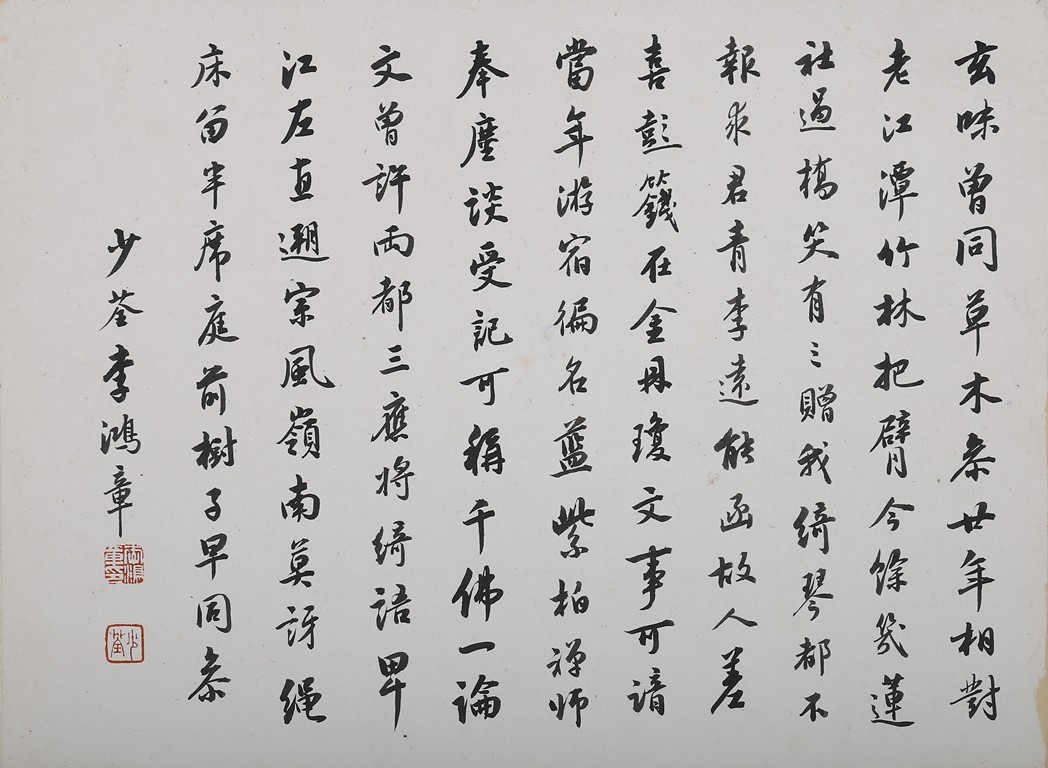 玄味曾同草木叅廿年相對
老江潭竹林把臂今餘幾蓮
社過橋笑有三贈我綺琴都不
報求君青李遠能函故人差
喜彭籛在金丹瓊文事可諳
當年游宿徧名藍紫柏禪師
奉麈談受記可稱千佛一論
文曾許兩都三應將綺語卑
江左直遡宗風嶺南莫訝繩
床留半席庭前樹子早同叅
少荃李鴻章
少荃